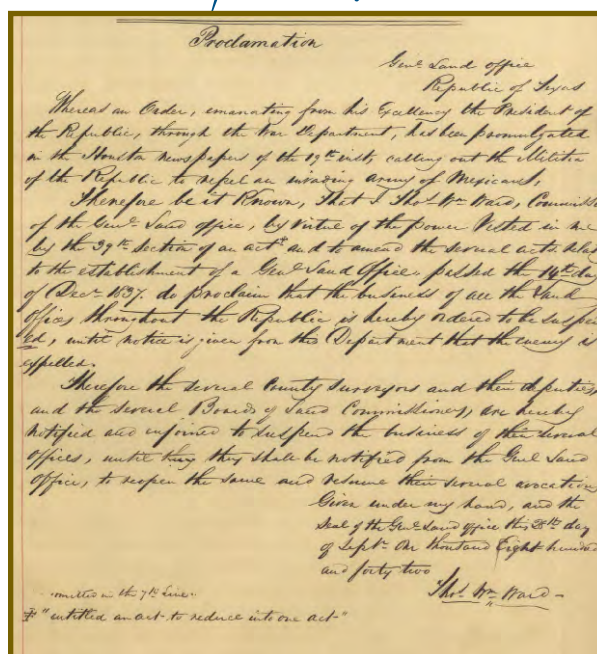 Proclamation
Genl Land Office
Republic of Texas
Whereas an Order, emanating from his Excellency the President of
the Republic, through the War Department, has been promulgated
in the Houston newspapers of the 19th inst, calling out the Militia
of the Republic to repel an invading army of Mexicans,
Therefore be it Known, That I Thos Wm Ward, Commiss
of the Genl Land office, by virtue of the power Vested in me
by the 39th section of an act* and to amend the several acts rela
to the establishment of a Genl Land Office" passed the 14th day
of Decr 1837. do proclaim that the business of all the Land
offices throughout the Republic is hereby ordered to be suspen
ed, until notice is given from this Department that the enemy is
expelled.
Therefore the several County Surveyors and their deputies,
and the several Boards of Land Commissioners, are hereby
notified and informed to suspend the business of their several
offices, until they shall be notified from the Genl Land
Office, to reopen the same and resume their several avocation
Given under my hand, and the
Seal of the Genl Land office this day
of Septr One thousand Eight hundred
and forty two
Thos Wm Ward
omitted in the 7th Line
* "entitled an act to reduce into one act"